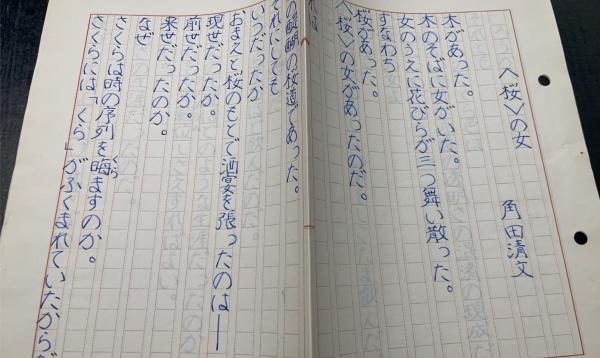 〈桜〉の女
角田清文
木があった。
木のそばに女がいた。
女のうえに花びらが三つ舞い散った。
すなわち
桜があった。
〈桜〉の女があったのだ。
れは
の醍醐の桜であった。
それにしても
いつだったか
おまえと桜のもとで酒宴を張ったのは――
現世だったか。
前世だったか。
来世だったのか。
なぜ
さくらは時の序列を晦ますのか。
くら
さくらには「くら」がふくまれていたからだ